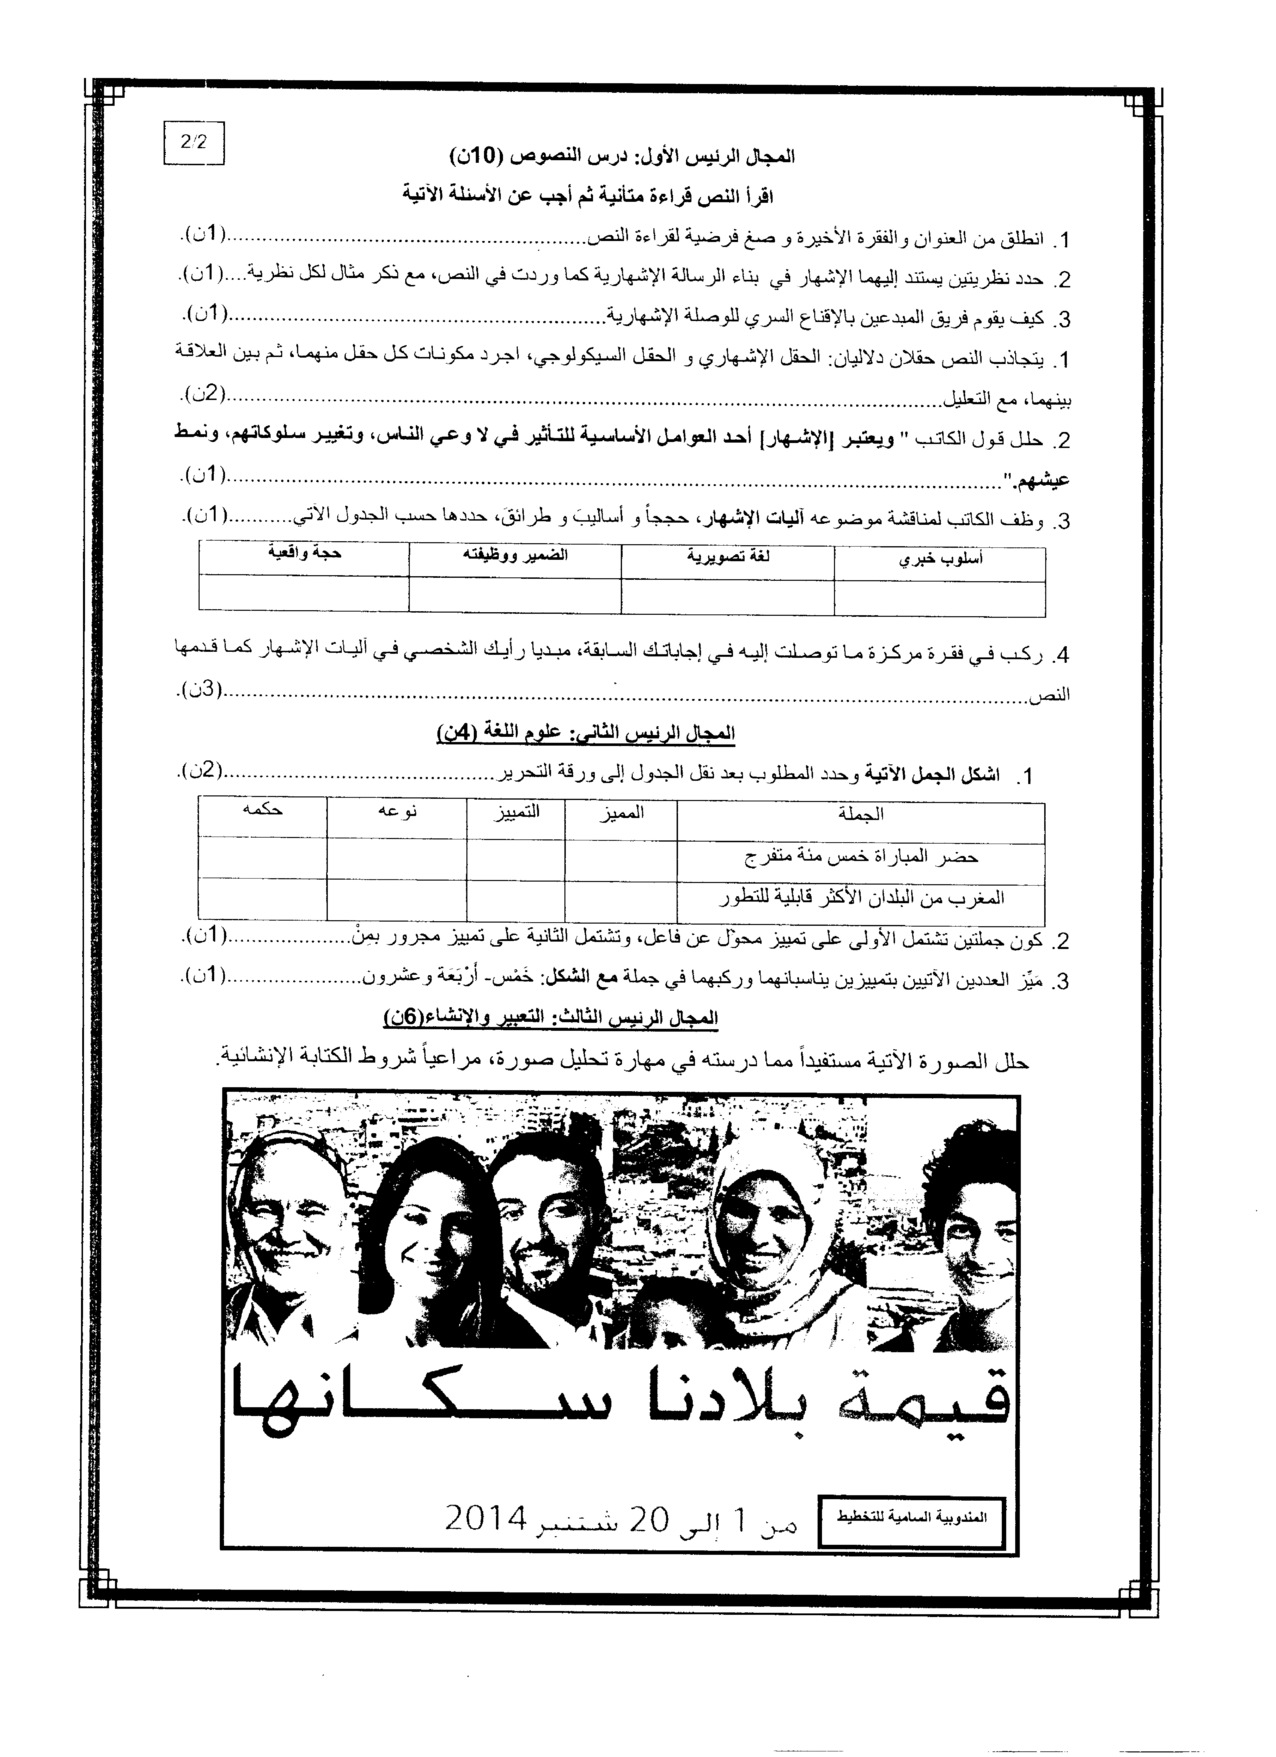 2/2
المجال الرئيس الأول: درس النصوص (10ن)
اقرأ النص قراءة متأنية ثم أجب عن الأسئلة الآتية
1. انطلق من العنوان والفقرة الأخيرة و صغ فرضية لقراءة النص..........(1ن).
2. حدد نظريتين يستند إليهما الإشهار في بناء الرسالة الإشهارية كما وردت في النص، مع ذكر مثال لكل نظرية....(1ن).
3. كيف يقوم فريق المبدعين بالإقناع السري للوصلة الإشهارية..........(1ن).
1. يتجاذب النص حقلان دلاليان: الحقل الإشهاري و الحقل السيكولوجي، اجرد مكونات كل حقل منهما، ثم بين العلاقة
بينهما، مع التعليل..........(2ن).
2. حلل قول الكاتب " ويعتبر [الإشهار] أحد العوامل الأساسية للتأثير في لا وعي الناس، وتغيير سلوكاتهم، ونمط
عيشهم."..........(1ن).
3. وظف الكاتب لمناقشة موضوعه آليات الإشهار، حججاً و أساليبَ و طرائقَ، حددها حسب الجدول الآتي..........(1ن).
أسلوب خبري لغة تصويرية الضمير ووظيفته حجة واقعية
4. ركب في فقرة مركزة ما توصلت إليه في إجاباتك السابقة، مبديا رأيك الشخصي في آليات الإشهار كما قدمها
النص..........(3ن).
المجال الرئيس الثاني: علوم اللغة (4ن)
1. اشكل الجمل الآتية وحدد المطلوب بعد نقل الجدول إلى ورقة التحرير..........(2ن).
الجملة المميز التمييز نوعه حكمه
حضر المباراة خمس مئة متفرج
المغرب من البلدان الأكثر قابلية للتطور
2. كون جملتين تشتمل الأولى على تمييز محوّل عن فاعل، وتشتمل الثانية على تمييز مجرور بمِنْ..........(1ن).
3. مَيِّز العددين الآتيين بتمييزين يناسبانهما وركبهما في جملة مع الشكل: خَمْس- أرْبَعَة وعشرون..........(1ن).
المجال الرئيس الثالث: التعبير والإنشاء(6ن)
حلل الصورة الآتية مستفيداً مما درسته في مهارة تحليل صورة، مراعياً شروط الكتابة الإنشائية.
قيمة بلادنا سكانها
المندوبية السامية للتخطيط
من 1 إلى 20 شتنبر 2014